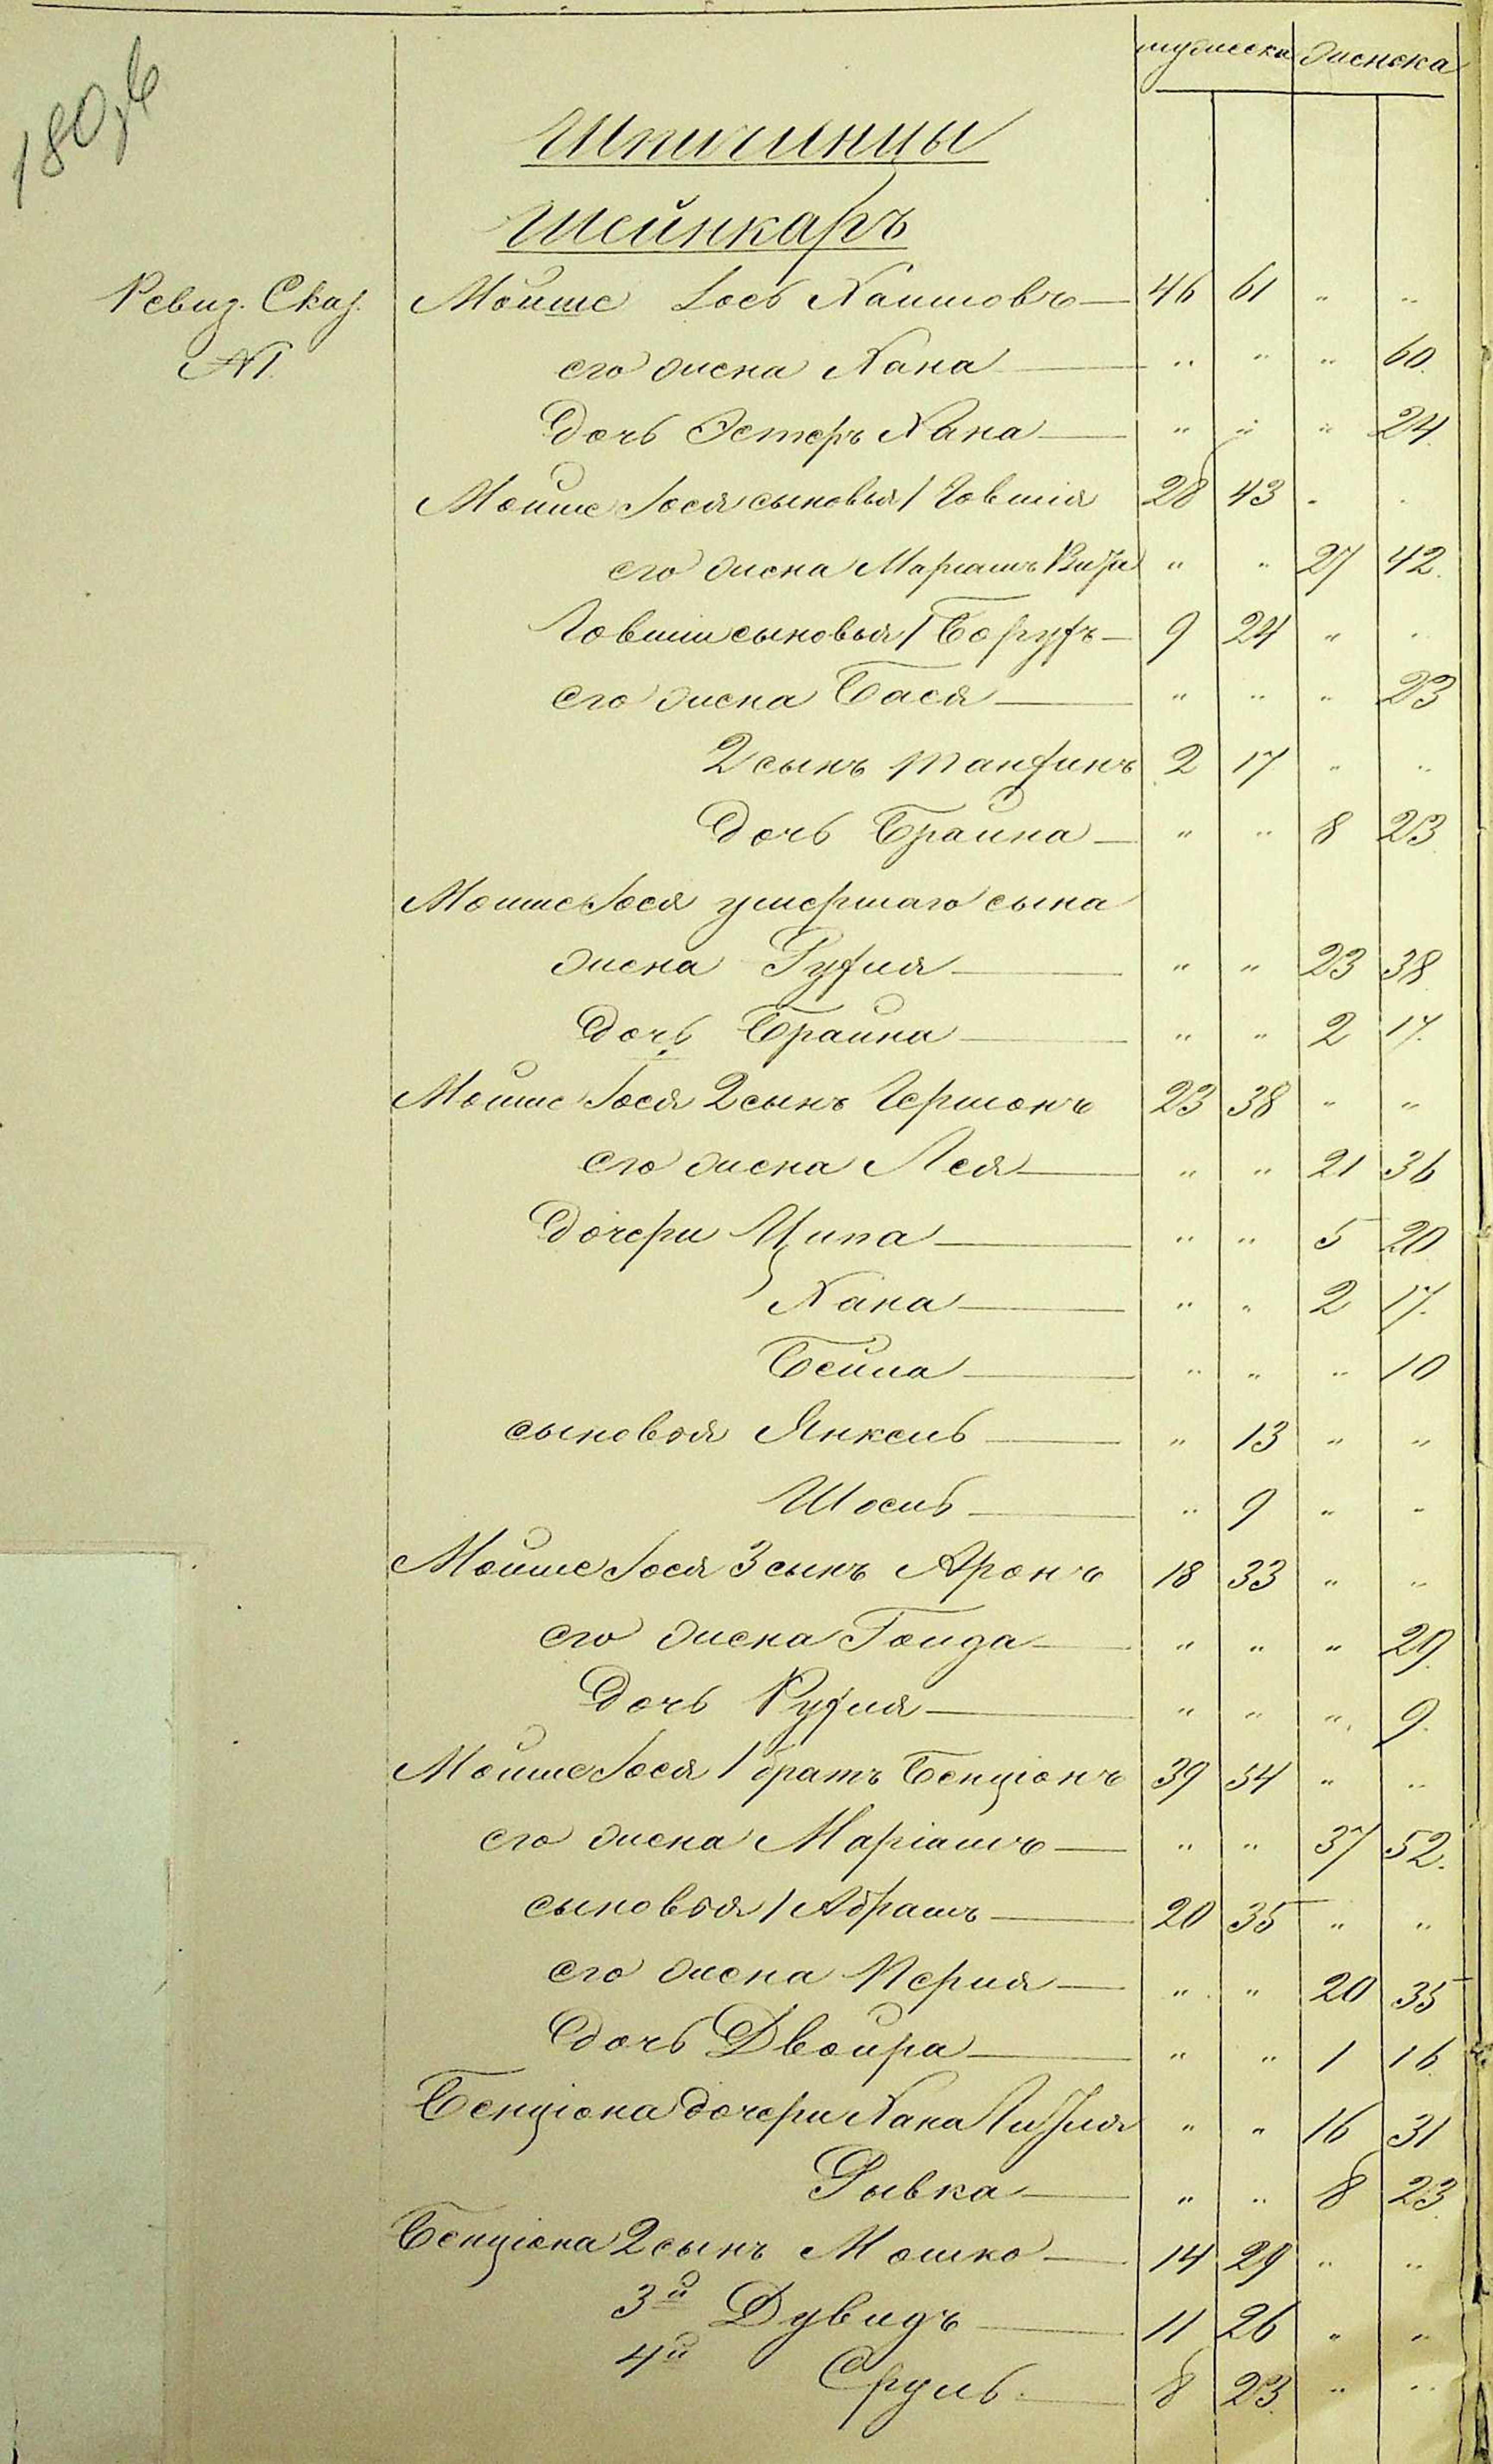 180
мужеска женска
Шпичинцы
Шейнкаръ
Ревиз. Сказ. Мойше Іось Хаимовъ — 46 61 " "
№ 1. его жена Хана — " " " 60.
дочь Эстеръ Хана — " " " 24.
Мойше Іося сыновья 1 Іовшія 28 43 " "
его жена Маріамъ " " 27 42.
Іовши сыновья 1 Борухъ — 9 24 " "
его жена Бася — " " " 23
2 сынъ Танхинъ 2 17 " "
дочь Брайна — " " 8 23
Мойше Іося умершаго сына
жена Рухля — " " 23 38
дочь Брайна — " " 2 17.
Мойше Іося 2 сынъ Гершонъ 23 38 " "
его жена Лея — " " 21 36
дочери Ципа — " " 5 20
Хана — " " 2 17.
Бейла — " " " 10
сыновья Янкель — " 13 " "
Шоель — " 9 " "
Мойше Іося 3 сынъ Аронъ 18 33 " "
его жена Гольда — " " " 29.
дочь Рухля — " " " 9.
Мойше Іося 1 братъ Бенціонъ 39 54 " "
его жена Маріамъ — " " 37 52.
сыновья 1 Абрамъ — 20 35 " "
его жена Перля — " " 20 35
дочь Двойра — " " 1 16
Бенціона дочери Хана " " 16 31
Рывка — " " 8 23.
Бенціона 2 сынъ Мошко — 14 29 " "
3й Дувидъ — 11 26 " "
4й Сруль — 8 23. " "